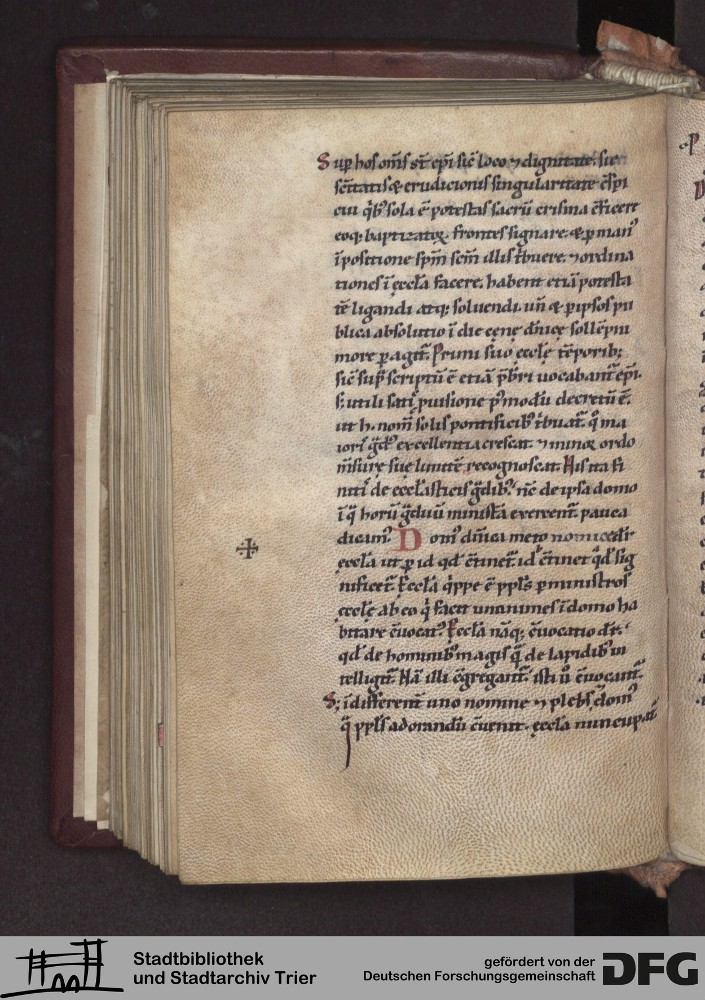 Sup hos om̄s st̄ ep̄i sic̄ loco ⁊ dignitate. sic
sc̄itatis & erudicionis singularitate c̄sp̄i
cui q̇b; sola ē potestas sacrū crisma c̄ficere
eoq; baptizatoꝝ frontes signare. & ꝑ man᾽
īpositione sp̄m sc̄m illis t̄buere. ⁊ ordina
tiones ī eccl̄a facere. habent etiā potesta
tē ligandi atq; soluendi. un̄ & ꝑ ipsos pu
blica absolutio ī die cęnę dn̄icę sollēpni
more ꝑagit᷑. Primi suo eccl̄ę tēporib;
sic̄ sup̄scriptū ē etiā p̄bri uocabant᷑ ep̄i.
s; utili satis puisione p᾽modū decretū ē.
ut h. nom̄ solis pontificib; t̄buat᷑. q̇ ma
iori ḡd᾽ excellentia crescat. ⁊ minoꝝ ordo
m̄surę suę limitē recognoscat. His ita fi
nitis de eccl̄asticis ḡdib;᾽ nc̄ de ipsa domo
ī q̄ horū ḡduū ministīa exercent᷑ pauca
dicam᾽. Dom᾽ dn̄ica meto nomicedr̄
eccl̄a ut ꝑ id qd̄ c̄tinet᷑. id c̄tinet᷑ qd̄ sig
nificet᷑. Eccl̄a q̇ppe ē ppl̄s ꝑ ministros
eccl̄ę ab eo q̇ facit unanimes ī domo ha
bitare c̄uocat᾽. Eccl̄a nāq; c̄uocatio dr̄.
qd̄ de hominib; magis q̄ de lapidib; in
telligit᷑. Nā illi c̄gregant᷑. isti ů c̄uocant᷑.
S; īdifferent᷑ uno nomine ⁊ plebs ⁊ dom᾽
q̄ ppl̄s adorandū c̄uenit. eccl̄a nuncupat᷑
Stadtbibliothek
und Stadtarchiv Trier
gefördert von der
Deutschen Forschungsgemeinschaft
DFG